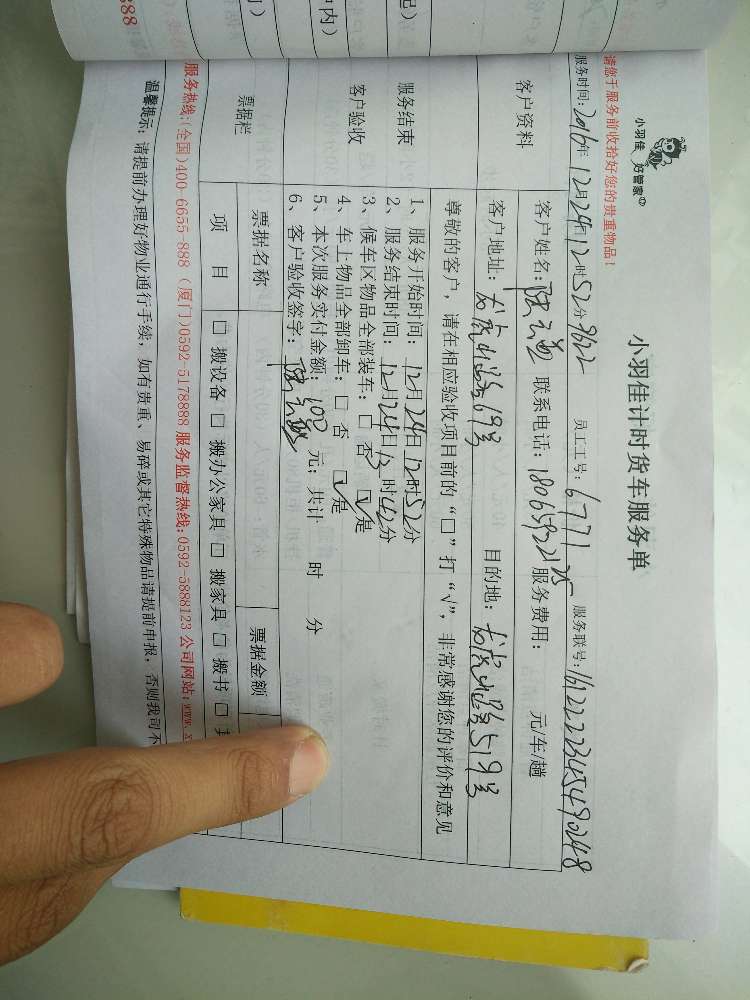 小羽佳 好管家
小羽佳计时货车服务单
请您于服务前收拾好您的贵重物品!
服务时间: 2016年12月24日12时52分 9622 员工工号: 6771 服务联号: 1612222345490248
客户资料
客户姓名: 联系电话: 18065921125 服务费用: 元/车/趟
客户地址: 69号 目的地: 519号
尊敬的客户, 请在相应验收项目前的“□”打“√”, 非常感谢您的评价和意见
服务结束
客户验收
1、服务开始时间: 12月24日12时52分
2、服务结束时间: 12月24日13时42分
3、候车区物品全部装车: □ 否 ☑是
4、车上物品全部卸车: □ 否 ☑是
5、本次服务实付金额: 100 元; 共计 时 分
6、客户验收签字:
票据栏
票据名称 票据金额
项 目 □ 搬设备 □ 搬办公家具 □ 搬家具 □ 搬书 □
服务热线:(全国)400-6655-888 (厦门)0592-5178888 服务监督热线:0592-5888123 公司网站:www.x
温馨提示: 请提前办理好物业通行手续, 如有贵重、易碎或其它特殊物品请提前申报, 否则我司不
888